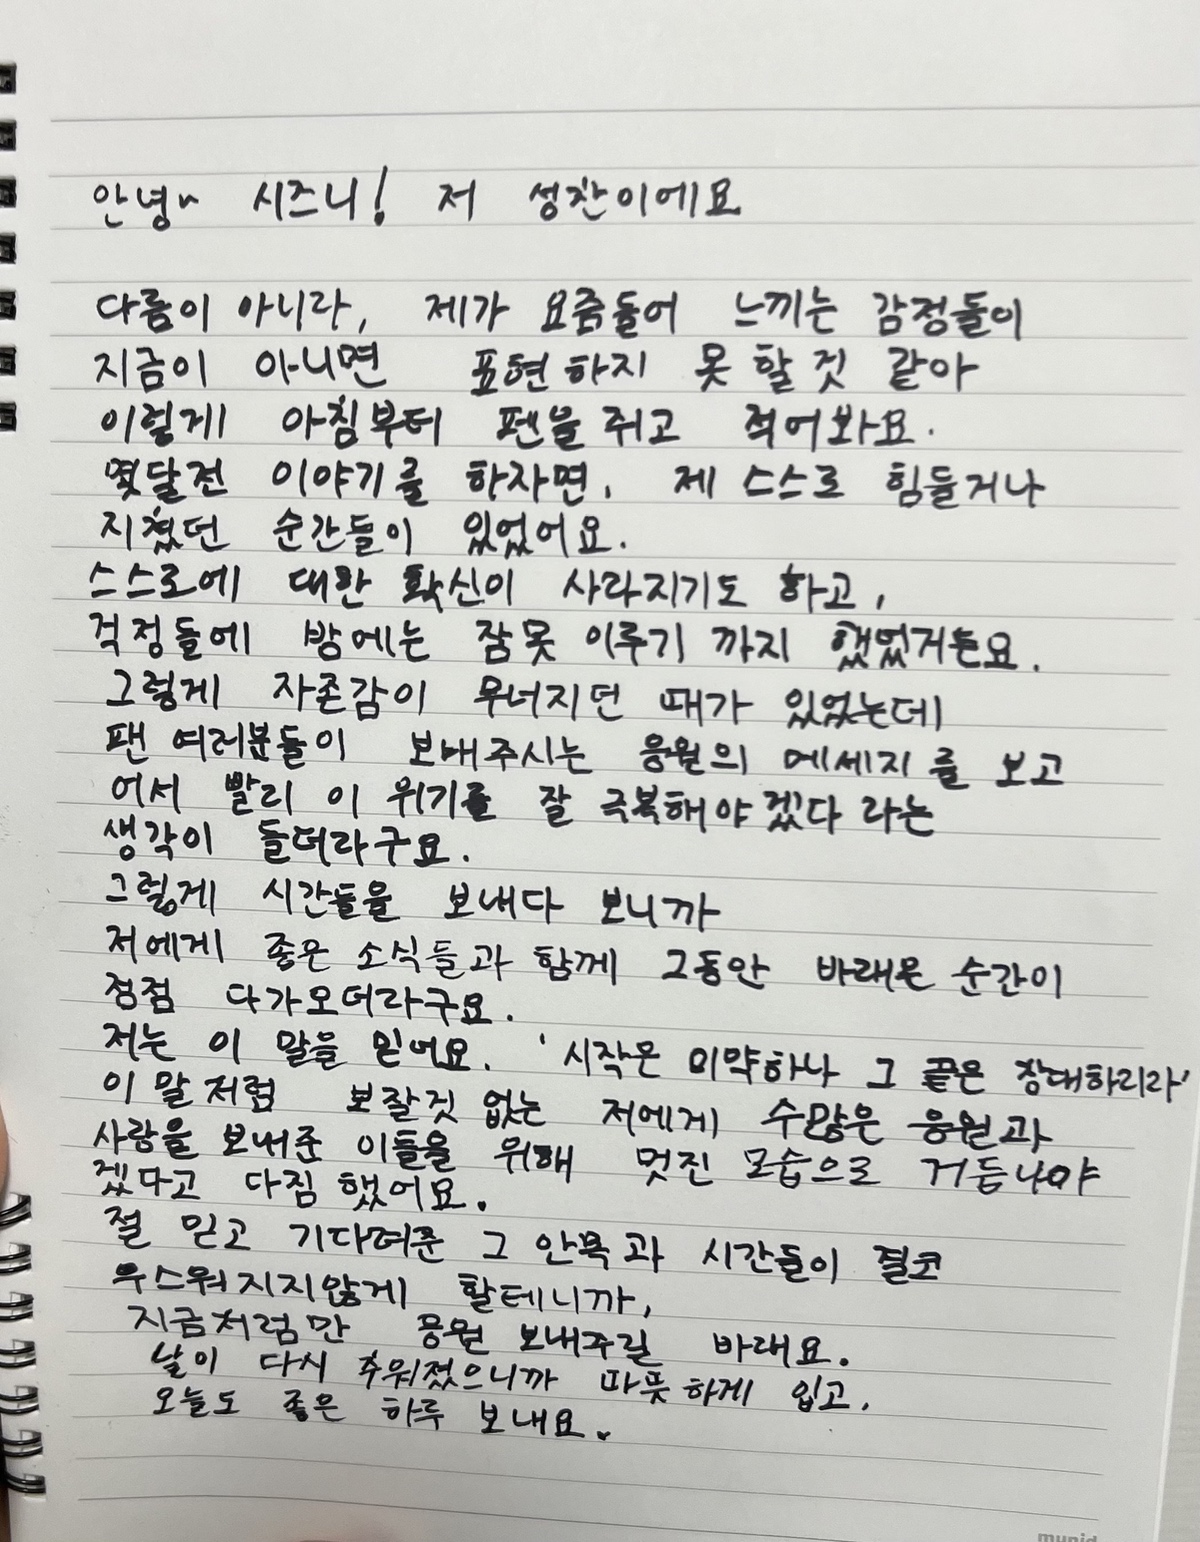 안녕~ 시즈니! 저 성찬이에요
다름이 아니라, 제가 요즘들어 느끼는 감정들이
지금이 아니면 표현하지 못 할것 같아
이렇게 아침부터 펜을 쥐고 적어봐요.
몇달전 이야기를 하자면, 제 스스로 힘들거나
지쳤던 순간들이 있었어요.
스스로에 대한 확신이 사라지기도 하고,
걱정들에 밤에는 잠못 이루기 까지 했었거든요.
그렇게 자존감이 무너지던 때가 있었는데
팬 여러분들이 보내주시는 응원의 메세지를 보고
어서 빨리 이 위기를 잘 극복해야겠다 라는
생각이 들더라구요.
그렇게 시간들을 보내다 보니까
저에게 좋은 소식들과 함께 그동안 바래온 순간이
점점 다가오더라구요.
저는 이 말을 믿어요. '시작은 미약하나 그 끝은 장대하리라'
이 말처럼 보잘것 없는 저에게 수많은 응원과
사랑을 보내준 이들을 위해 멋진 모습으로 거듭나야
겠다고 다짐했어요.
절 믿고 기다려준 그 안목과 시간들이 결코
우스워지지않게 할테니까,
지금처럼만 응원 보내주길 바래요.
날이 다시 추워졌으니까 따뜻하게 입고,
오늘도 좋은 하루 보내요.